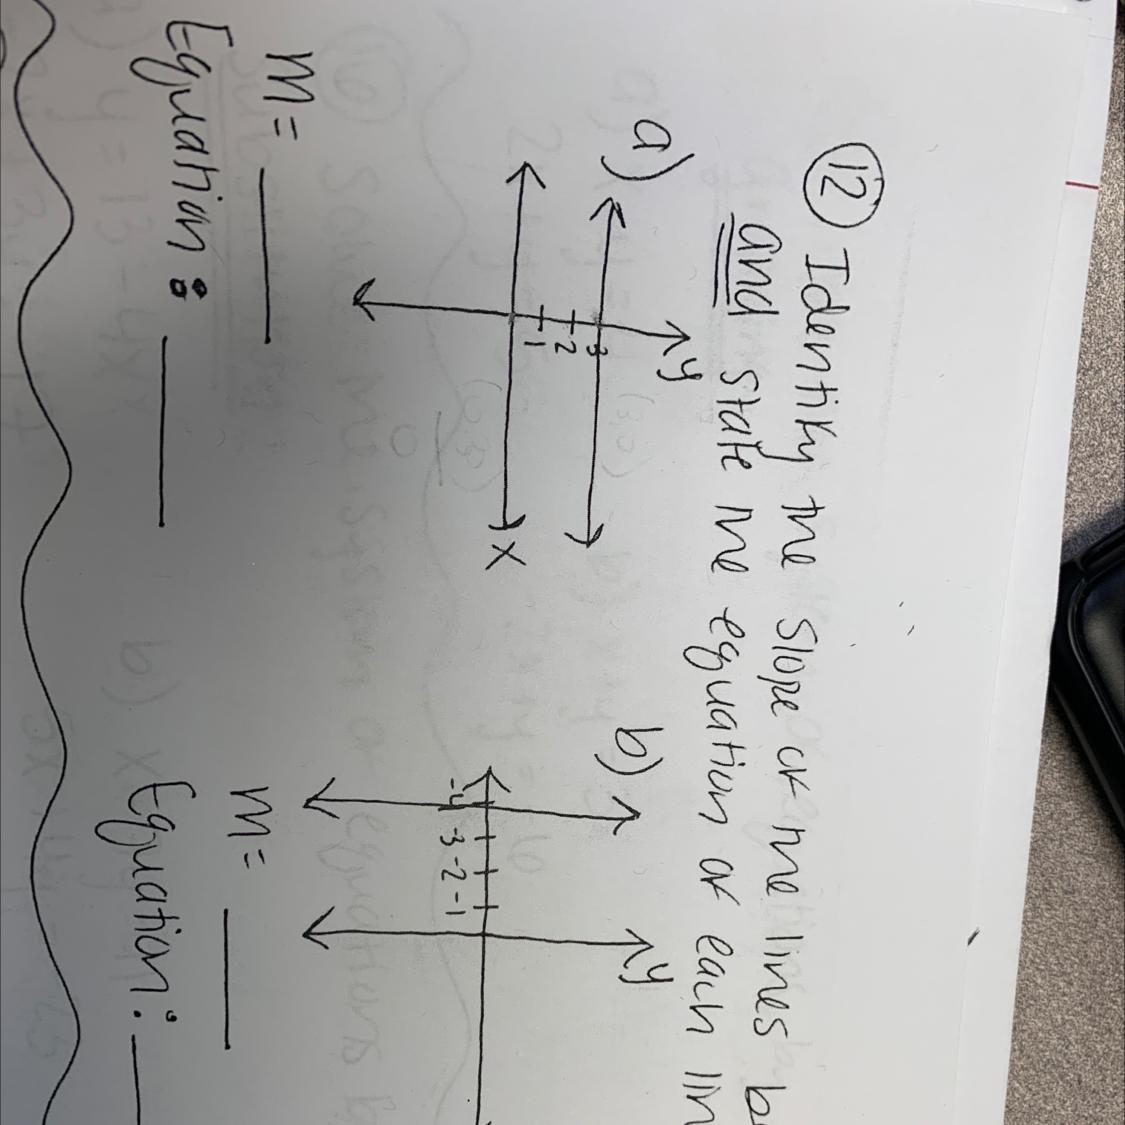 12 Identify the slope of the lines
and state the equation of each
a)
y
3
2
1
x
m = ____
Equation: ____
b)
y
-4 -3 -2 -1
m = ____
Equation: ____